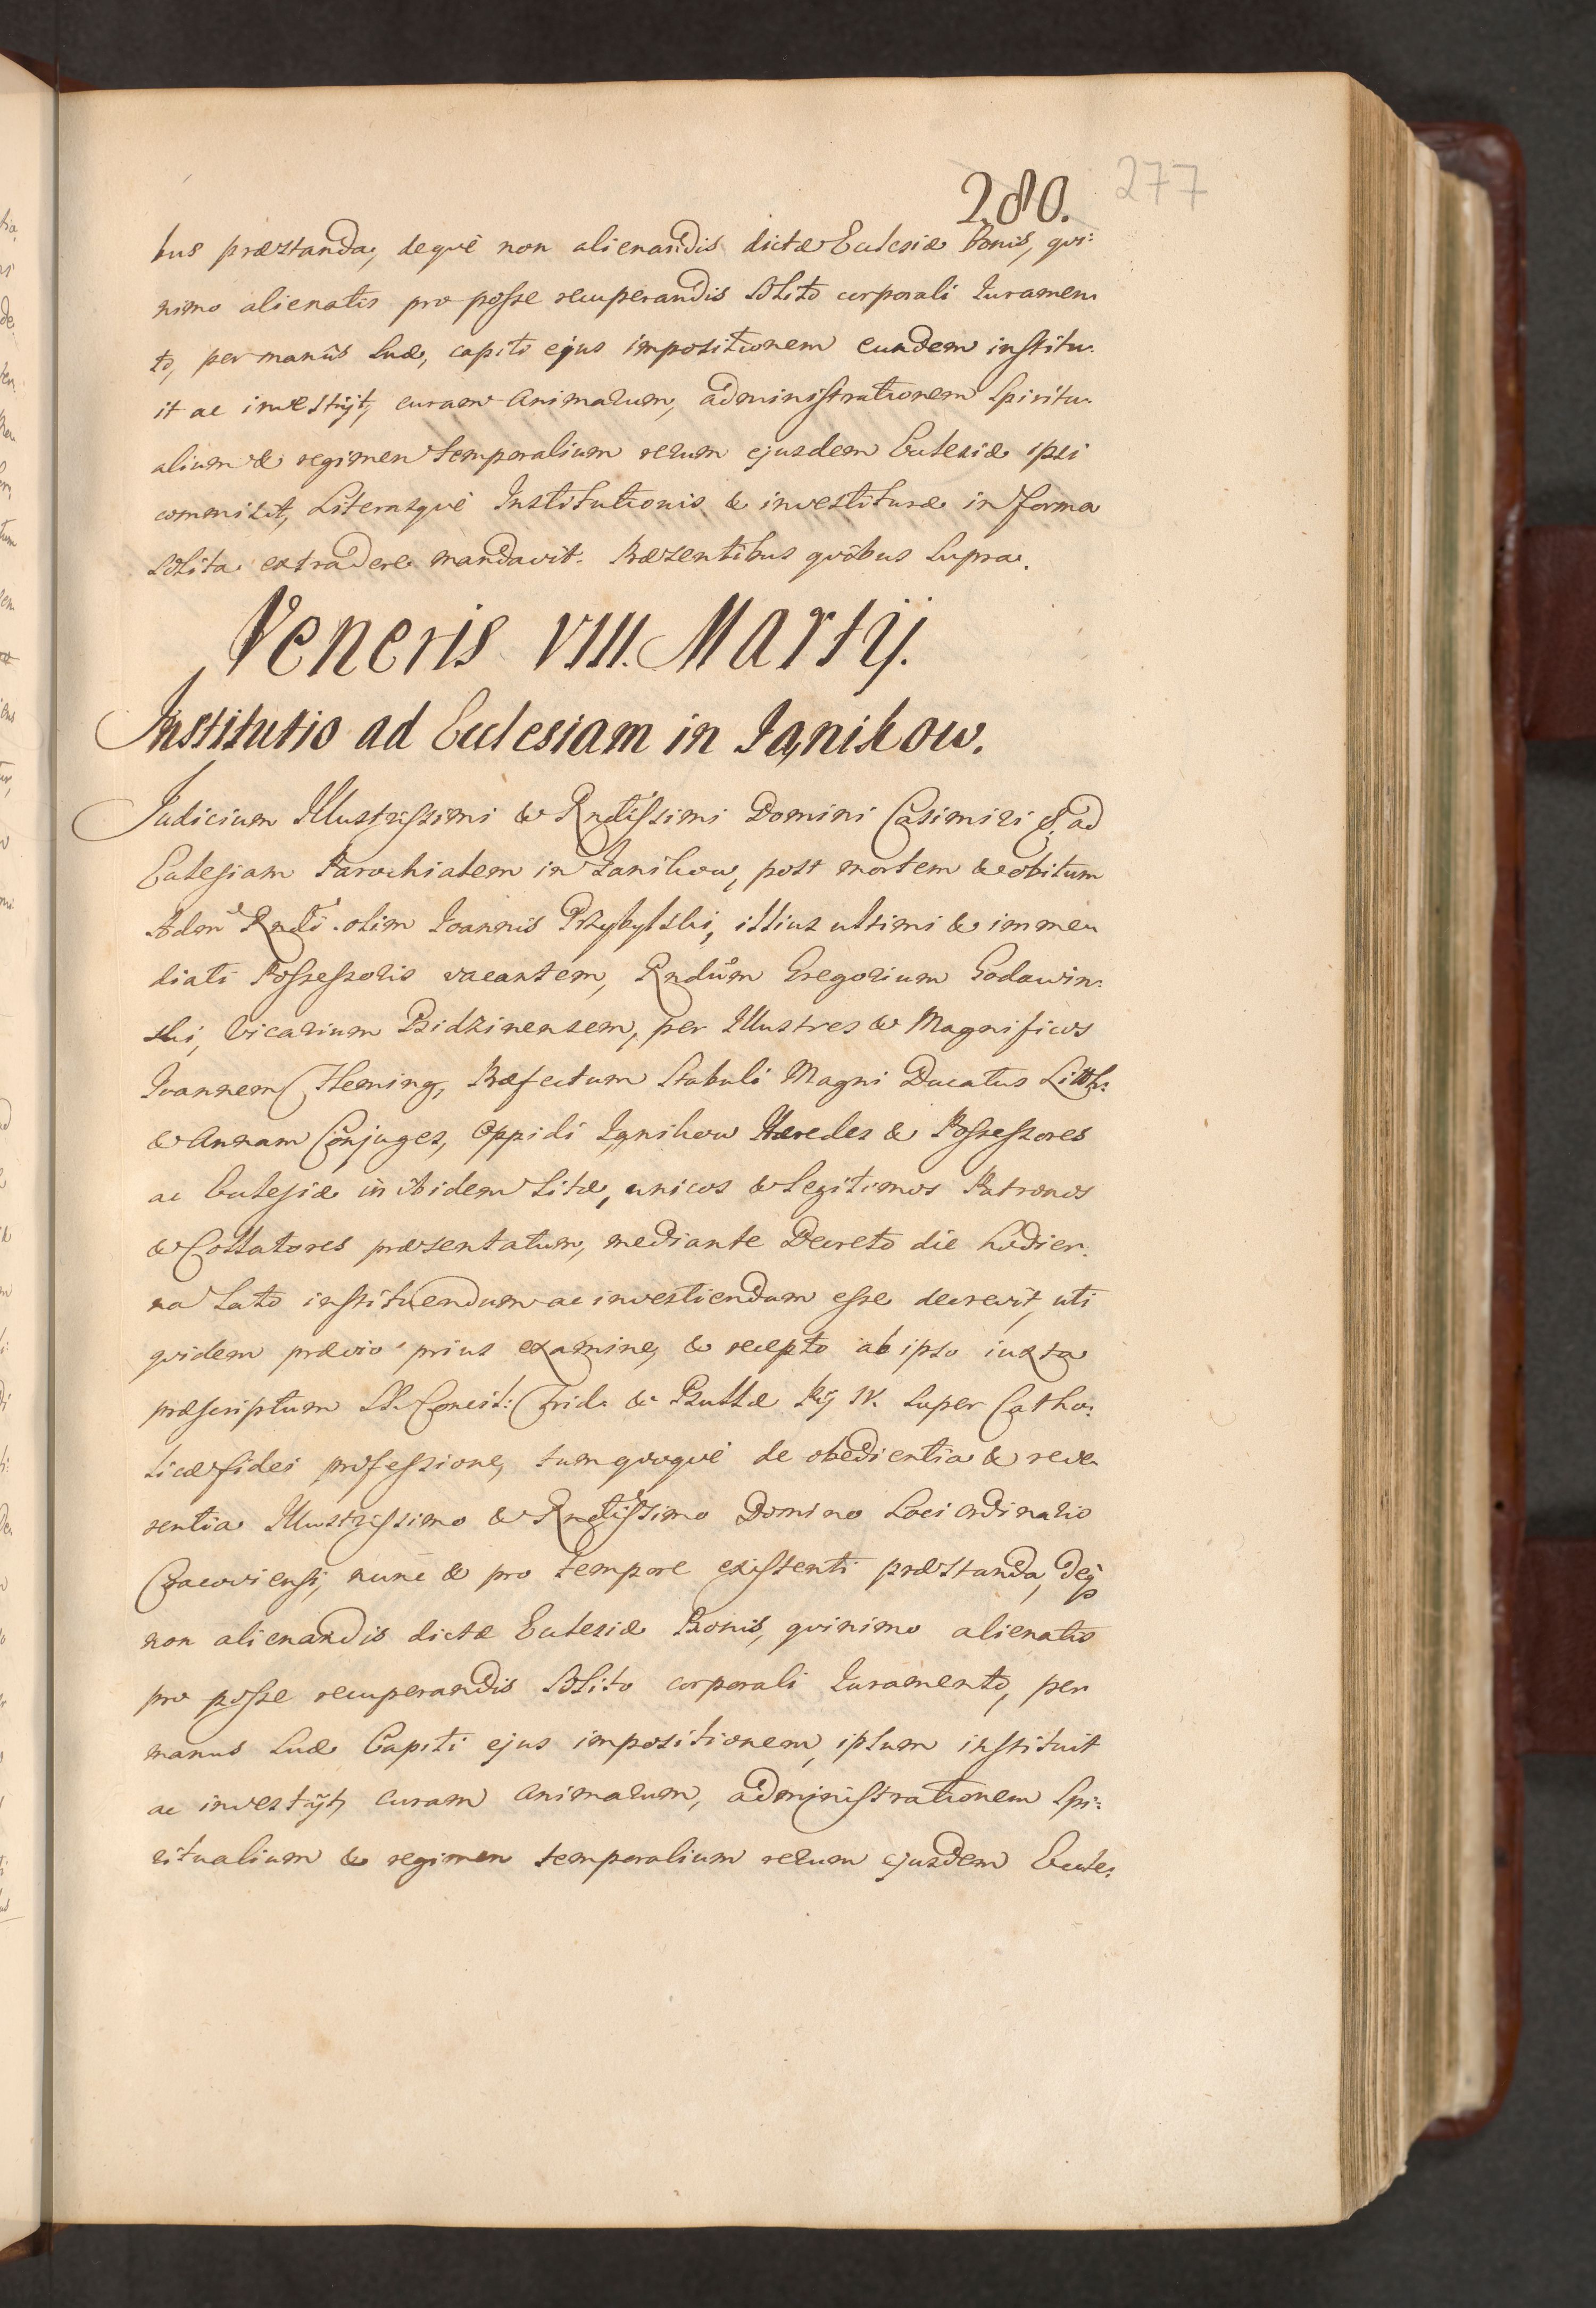 280. 277
bus præstanda, dequè non alienandis dictæ Ecclesiæ bonis, qvi:
nimo alienatis pro posse recuperandis solito corporali Juramen
to, per manûs suæ, capiti ejus impositionem eundem institu:
it ac investijt, curam Animarum, administrationem Spiritu:
alium & regimen temporalium rerum ejusdem Ecclesiæ ipsi
commisit, Literasquè Institutionis & investituræ in forma
solita extradere mandavit. Præsentibus qvibus supra.
Veneris VIII. Martij.
Institutio ad Ecclesiam in Janikow.
Judicium Illustrissimi & Rndissimi Domini Casimiri &, ad
Eclesiam Parochialem in Janikow, post mortem & obitum
Adm Rndi olim Joannis Przybylski, illius ultimi & imme
diati Possessoris vacantem, Rndum Gregorium Godawin:
ski, Vicarium Bidzinensem, per Illustres & Magnificos
Joannem Fleming, Præfectum Stabuli Magni Ducatus Litth:
& Annam Conjuges, Oppidi Janikow Hæredes & Possessores
ac Ecclesiæ inibidem sitæ, unicos & legitimos Patronos
& Collatores præsentatum, mediante Decreto die hodier:
na lato instituendum ac investiendum esse decrevit, uti
qvidem prævio prius examine, & recepto ab ipso iuxta
præscriptum SS. Concil: Trid. & Bullæ Pij IV. super Catho:
licæ fidei professione, tum qvoquè de obedientia & reve
rentia Illustrissimo & Rndissimo Domino Loci Ordinario
Cracoviensi, nunc & pro tempore existenti præstanda, deq
non alienandis dictæ Ecclesiæ Bonis, qvinimo alienatis
pro posse recuperandis solito corporali Juramento, per
manus suæ Capiti ejus impositionem, ipsum instituit
ac investijt, curam Animarum, administrationem Spi:
ritualium & regimen temporalium rerum ejusdem Eccle: